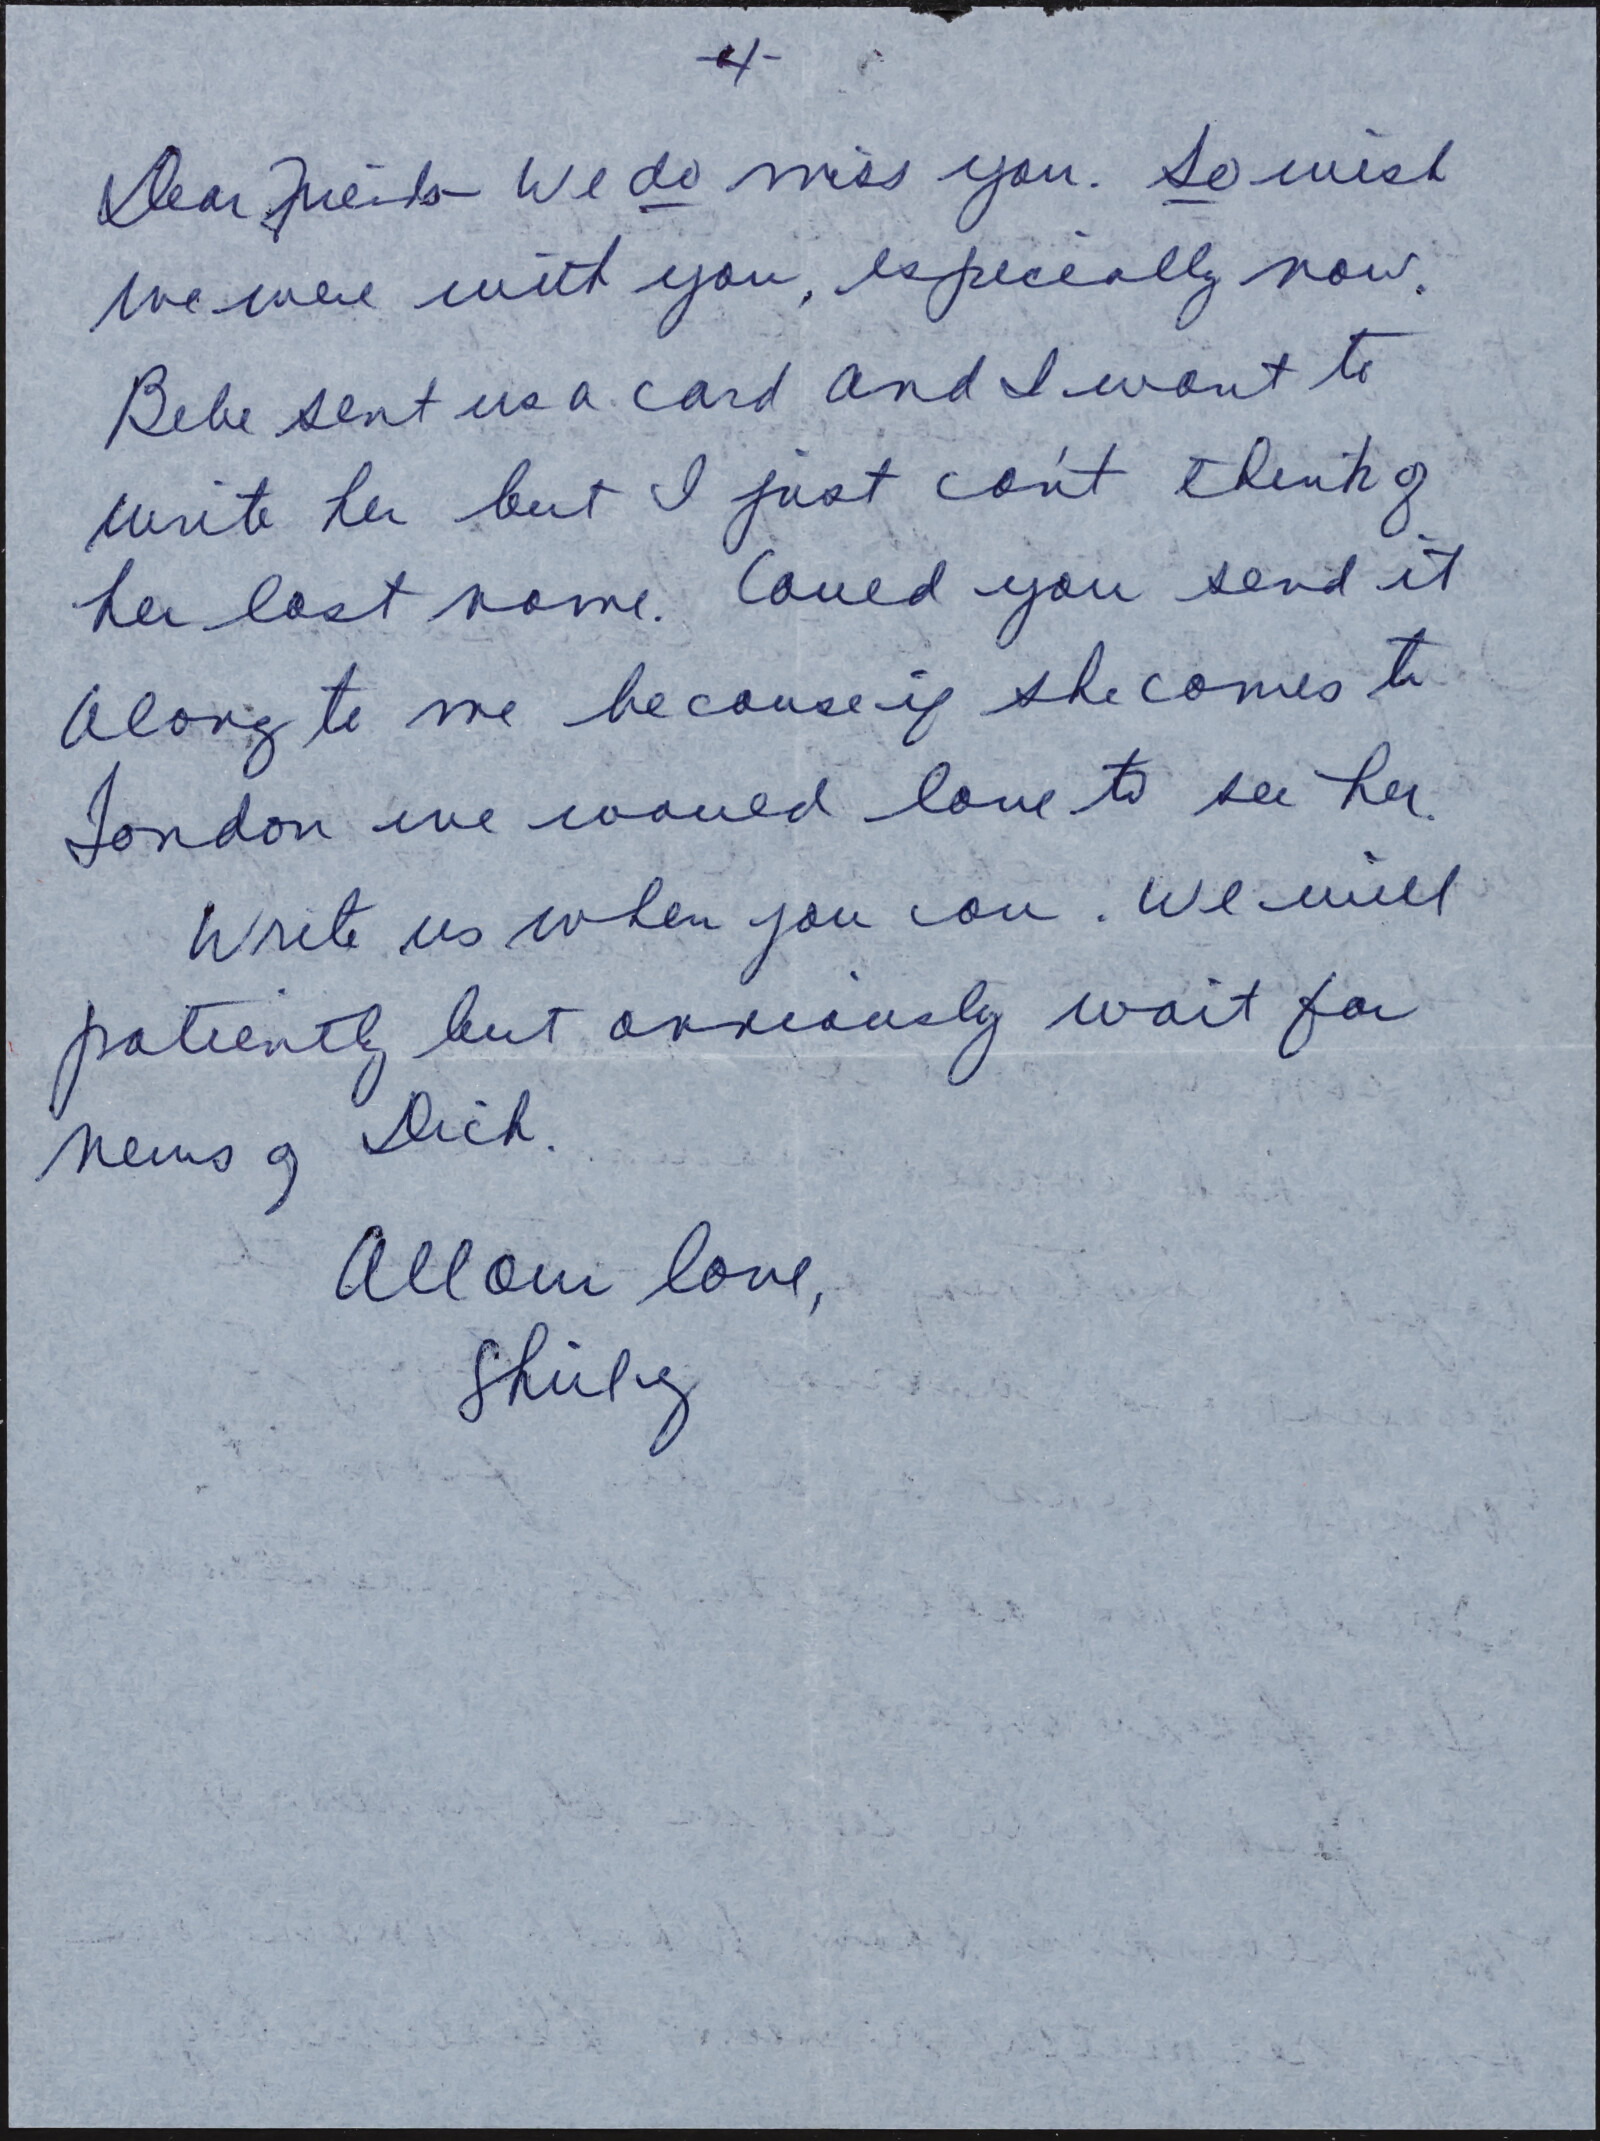 -4-
Dear Friends - We do miss you. So wish
we were with you, especially now.
Bebe sent us a card and I want to
write her but I just can't think of
her last name. Could you send it
along to me because if she comes to
London we would love to see her.
Write us when you can. We will
patiently but anxiously wait for
news of Dick.
All our love,
Shirley